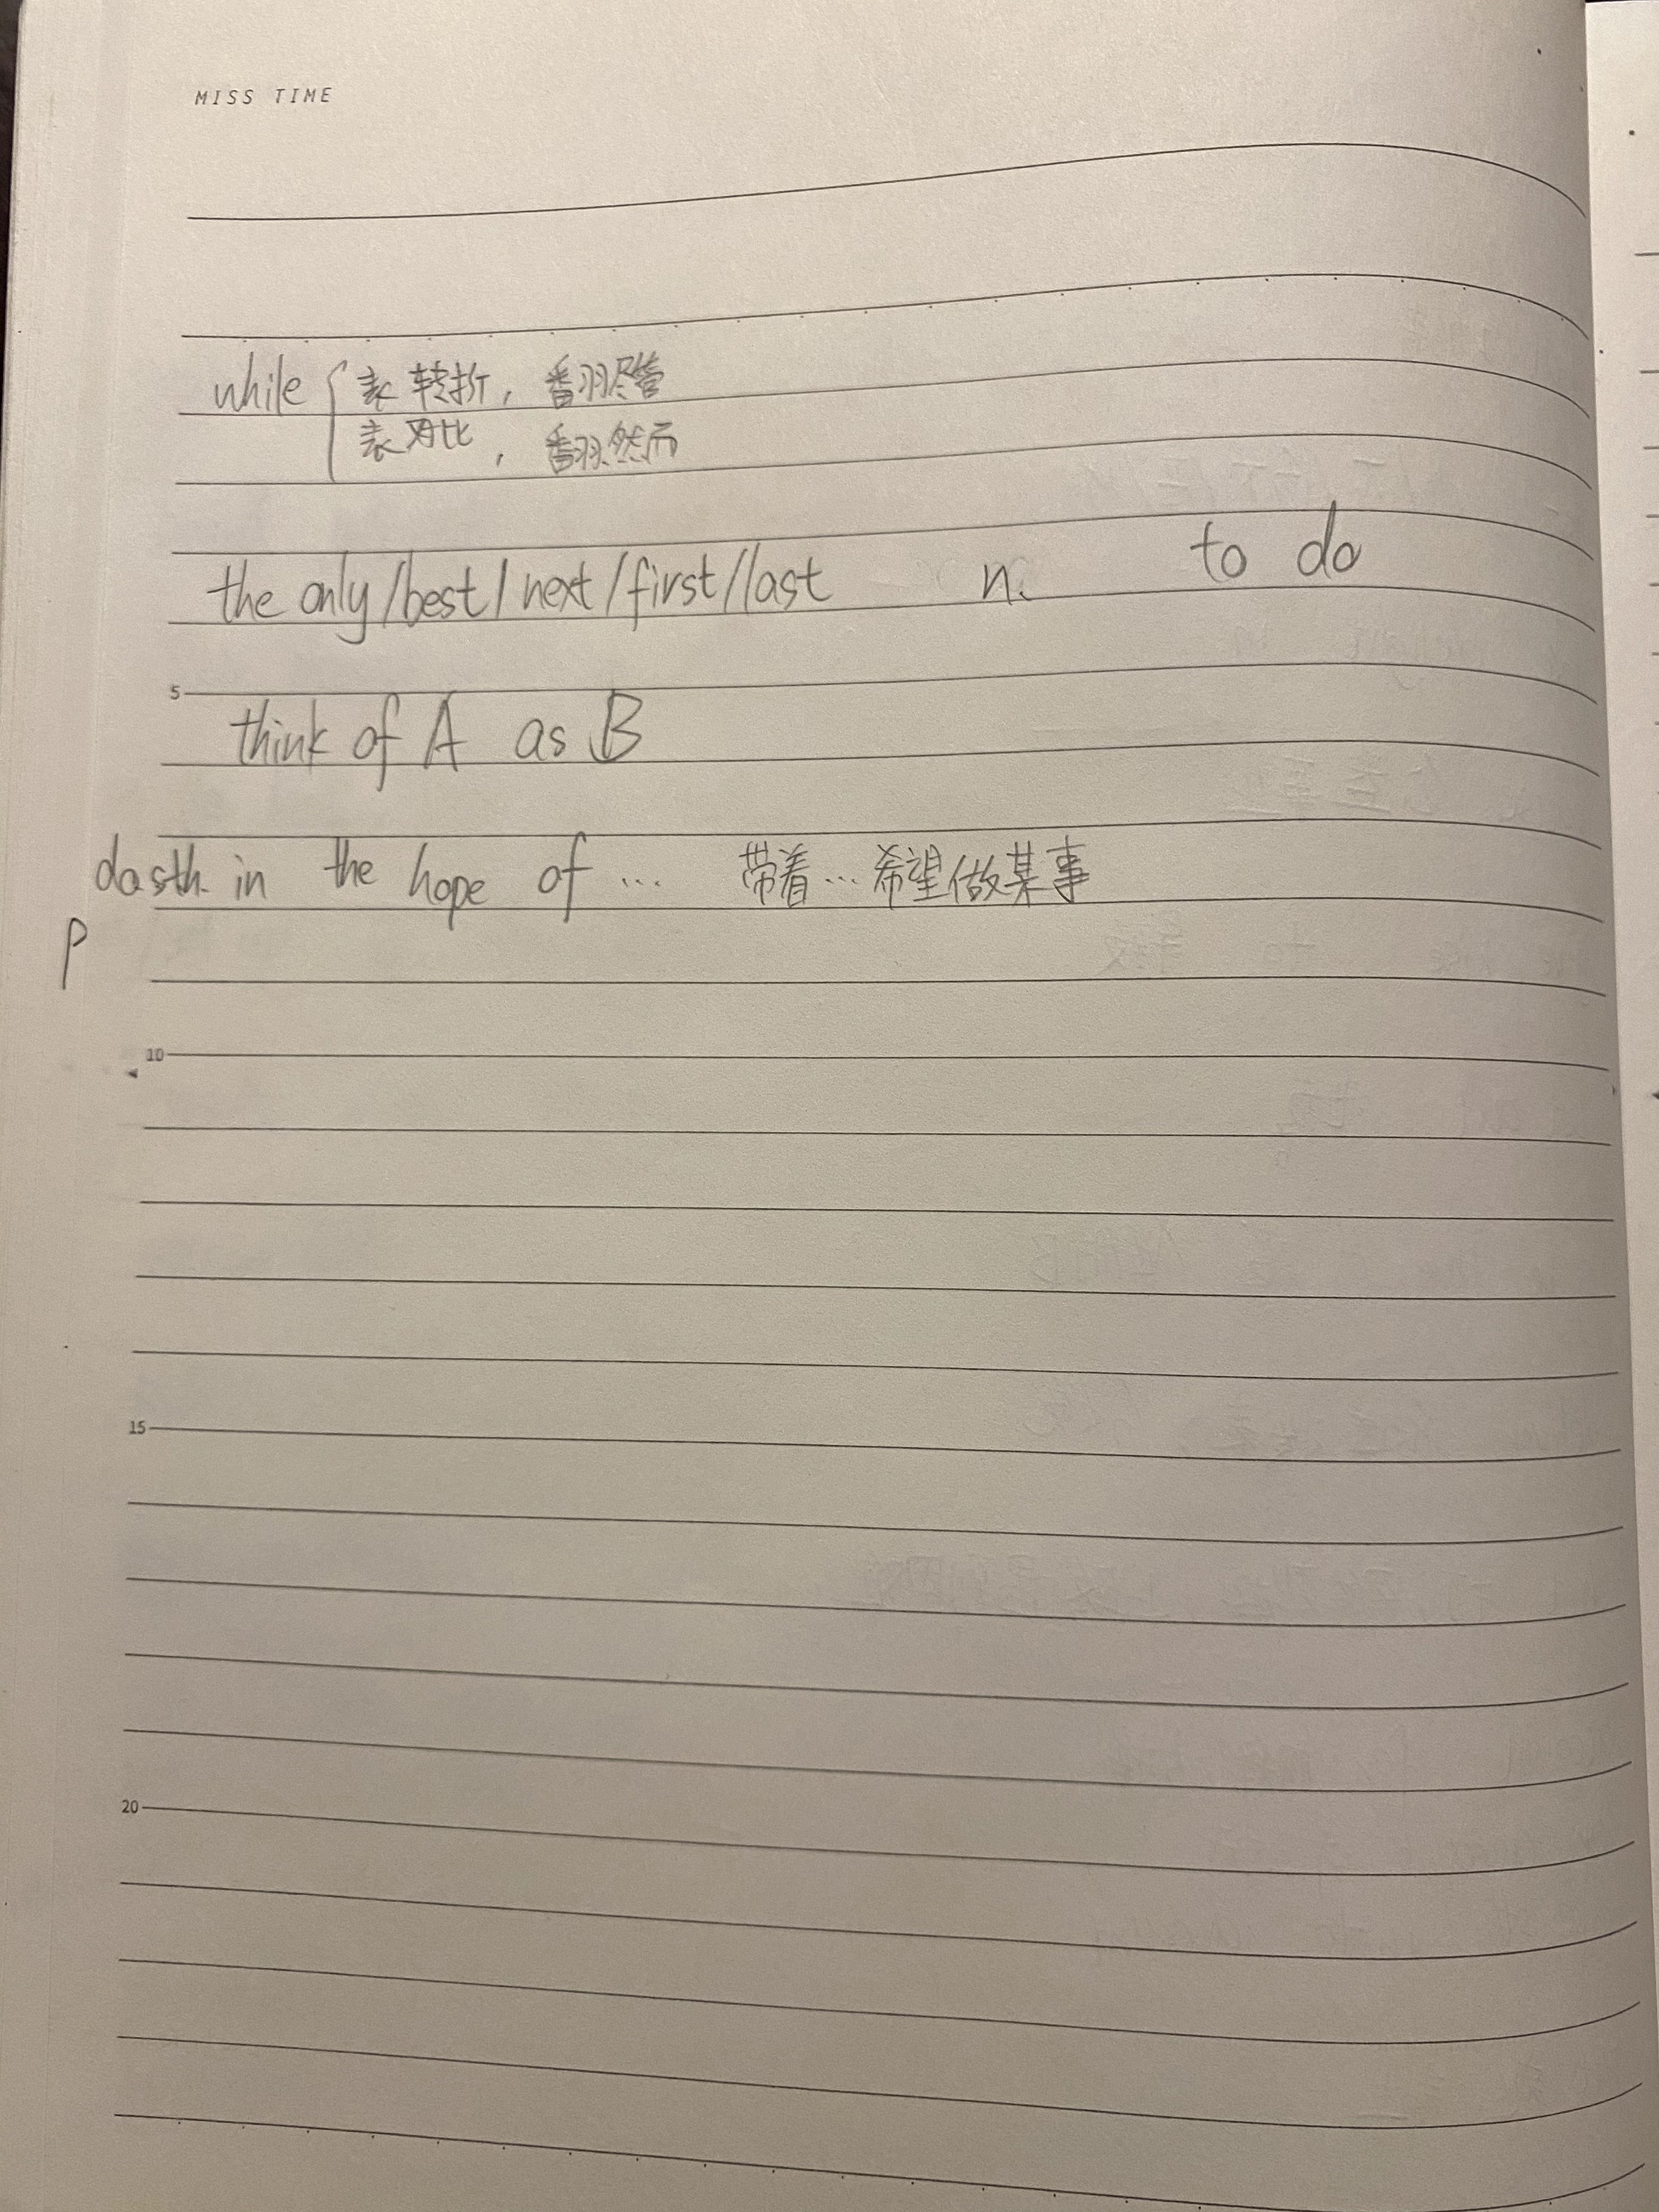 MISS TIME
while { 表转折，翻译尽管
表对比，翻译然而
the only/best/next/first/last n. to do
5
think of A as B
do sth. in the hope of … 带着…希望做某事
P
10
15
20